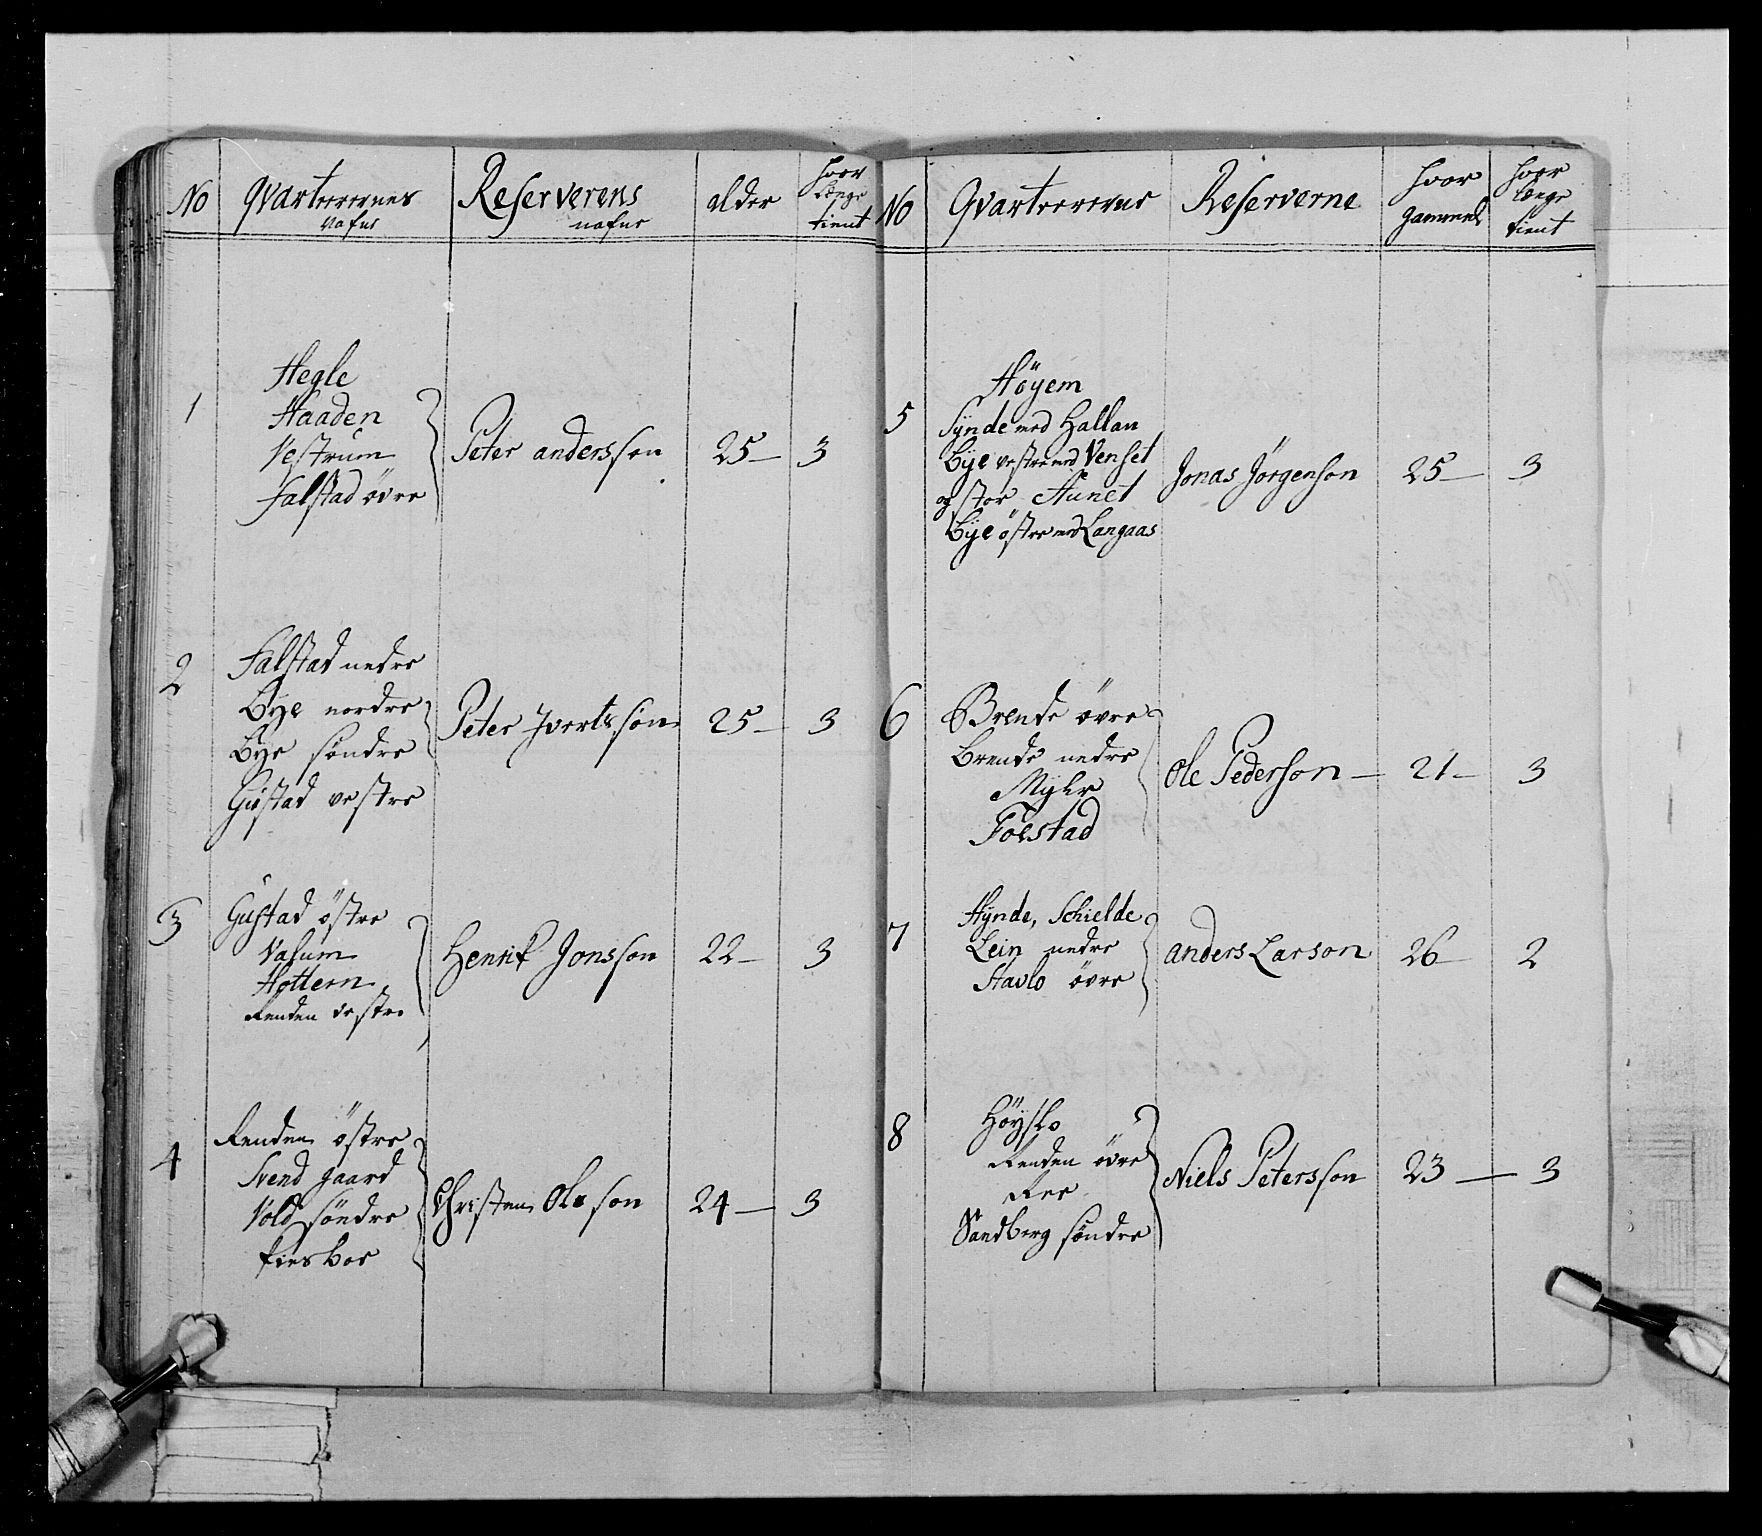 No Qvarteerernes nafne Reserverens nafne alder hvor længe tient
1
Hegle
Haaden
Vestrum
Falstad øvre
Peter andersson 25 — 3
2
Falstad nedre
Bye nordre
Bye søndre
Gustad vestre
Peter Ivertsøn 25 — 3
3
Gustad østre
Valum
Hottern
Renden vestre
Henrik Jonsson 22 — 3
4
Renden østre
Svend gaard
Vold søndre
Christen Oleson 24 — 3
No Qvarteererne Reserverne hvor gammel hvor længe tient
5
Höyem
Synde med Hallan
Bye vestre med Venset
og stor Aunet
Bye östre med Langaas
Jonas Jörgenson 25 — 3
6
Brende övre
Brende nedre
Myhr
Foestad
Ole Pederson — 21 — 3
7
Hynde, Schielde
Lein nedre
Stavlo övre
anders Larson 26 2
8
Höyslo
Renden övre
Ree
Sandberg søndre
Niels Petersson 23 — 3